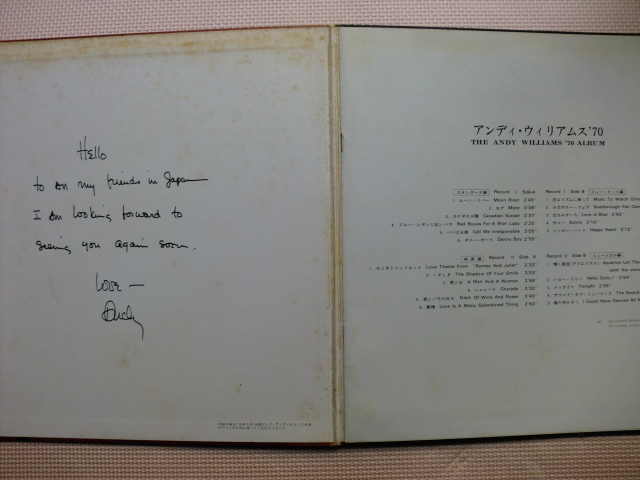 Hello
to all my friends in Japan
I am looking forward to
seeing you again soon.
Love —
Andy
アンディ・ウィリアムス'70
THE ANDY WILLIAMS '70 ALBUM
スタンダード編 Record I Side A
1. ムーン・リバー Moon River 2'45"
2. モア More
3. カナダの夕陽 Canadian Sunset 2'37"
4. ブルー・レディに紅いバラ Red Roses For A Blue Lady 2'25"
Call Me Irresponsible
6. ダニー・ボーイ Danny Boy 2'55"
Record I Side B
Music To Watch Girls
2. スカボロー・フェア Scarborough Fair
3. 恋はみずいろ Love Is Blue 2'43"
4. サニー Sunny
5. ハッピー・ハート Happy Heart
映画編 Record II Side A
1. ロミオとジュリエット Love Theme From "Romeo And Juliet" 2'32"
2. いそしぎ The Shadow Of Your Smile 3'03"
3. 男と女 A Man And A Woman
4. シャレード Charade
5. 酒とバラの日々 Days Of Wine And Roses
6. 慕情 Love Is A Many Splendored Thing
Record II Side B ミュージカル編
Aquarius Let The
2. ハロー・ドリー Hello Dolly!
3. トゥナイト Tonight
4. サウンド・オブ・ミュージック The Sound
5. 踊り明かそう I Could Have Danced All